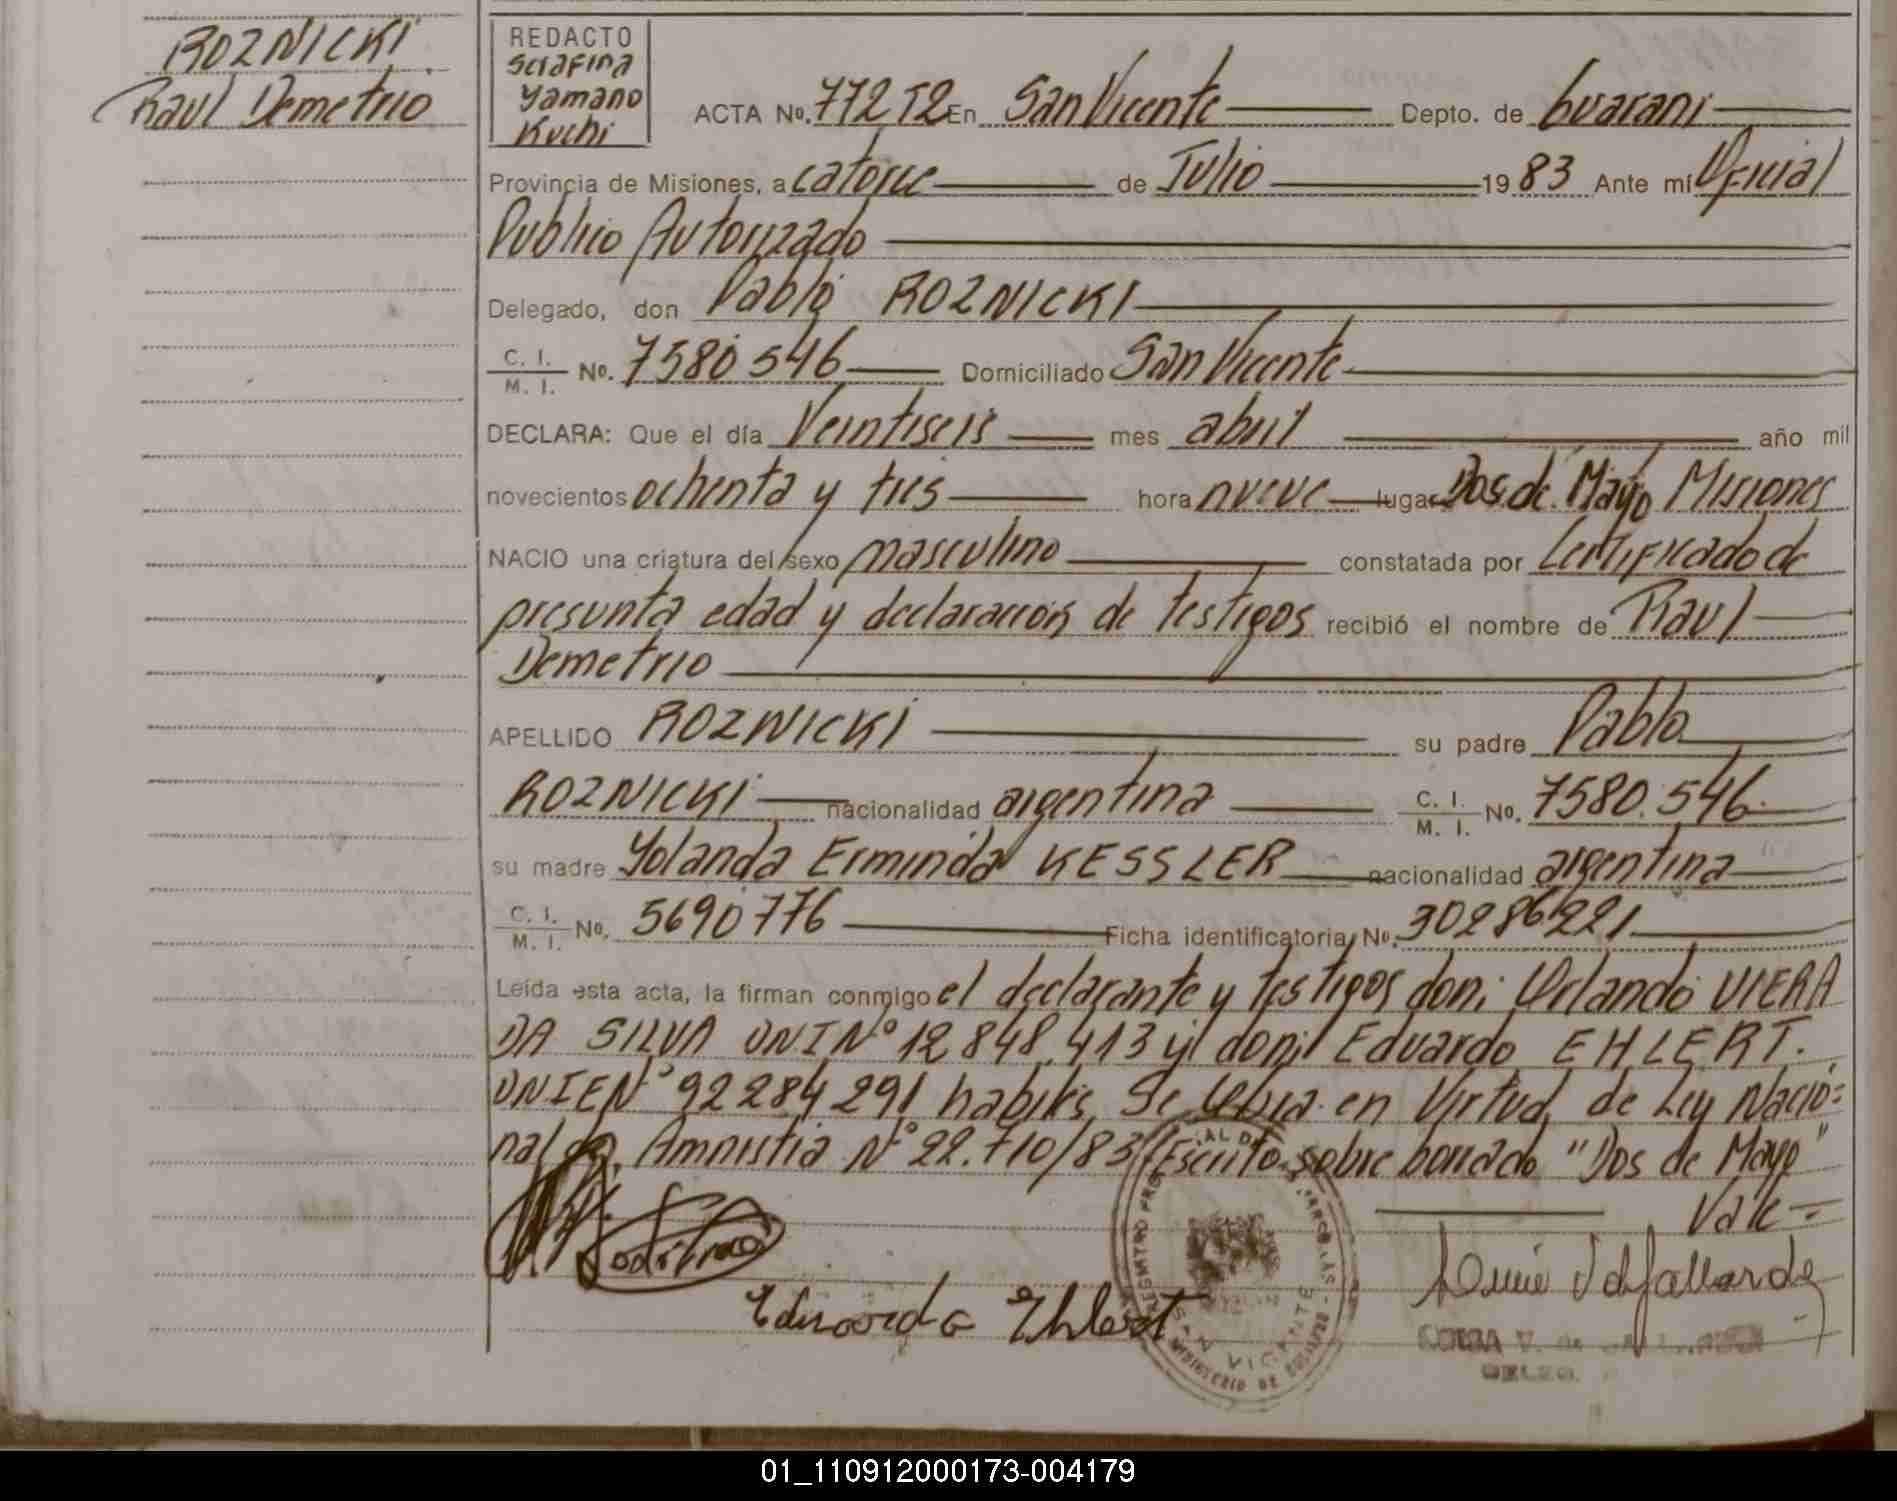 ROZNICKI
Raul Demetrio
REDACTO
Serafina
Yamano
Kuchi
ACTA No. 772 T2 En San Vicente Depto. de Guarani
Provincia de Misiones, a catorce de Julio 1983 Ante mí Oficial
Publico Autorizado
Delegado, don Pablo ROZNICKI
C. I. / M. I. No. 7580546 Domiciliado San Vicente
DECLARA: Que el día Veintiseis mes abril año mil
novecientos ochenta y tres hora nueve lugar Dos de Mayo Misiones
NACIO una criatura del sexo masculino constatada por Certificado de
presunta edad y declaracion de testigos recibió el nombre de Raul
Demetrio
APELLIDO ROZNICKI su padre Pablo
ROZNICKI nacionalidad argentina C. I. / M. I. No. 7580.546
su madre Yolanda Erminda KESSLER nacionalidad argentina
C. I. / M. I. No. 5690776 Ficha identificatoria No. 30286221
Leída esta acta, la firman conmigo el declarante y testigos don: Orlando VIERA
DA SILVA DNI Nº 12848.413 y don: Eduardo EHLERT.
DNIE Nº 92284291 habiles Se Obra en Virtud de Ley Nacio=
nal de Amnistia Nº 22.710/83 Escrito sobre borrado "Dos de Mayo"
Vale =
Eduardo Ehlert
SAN VICENTE
01_110912000173-004179